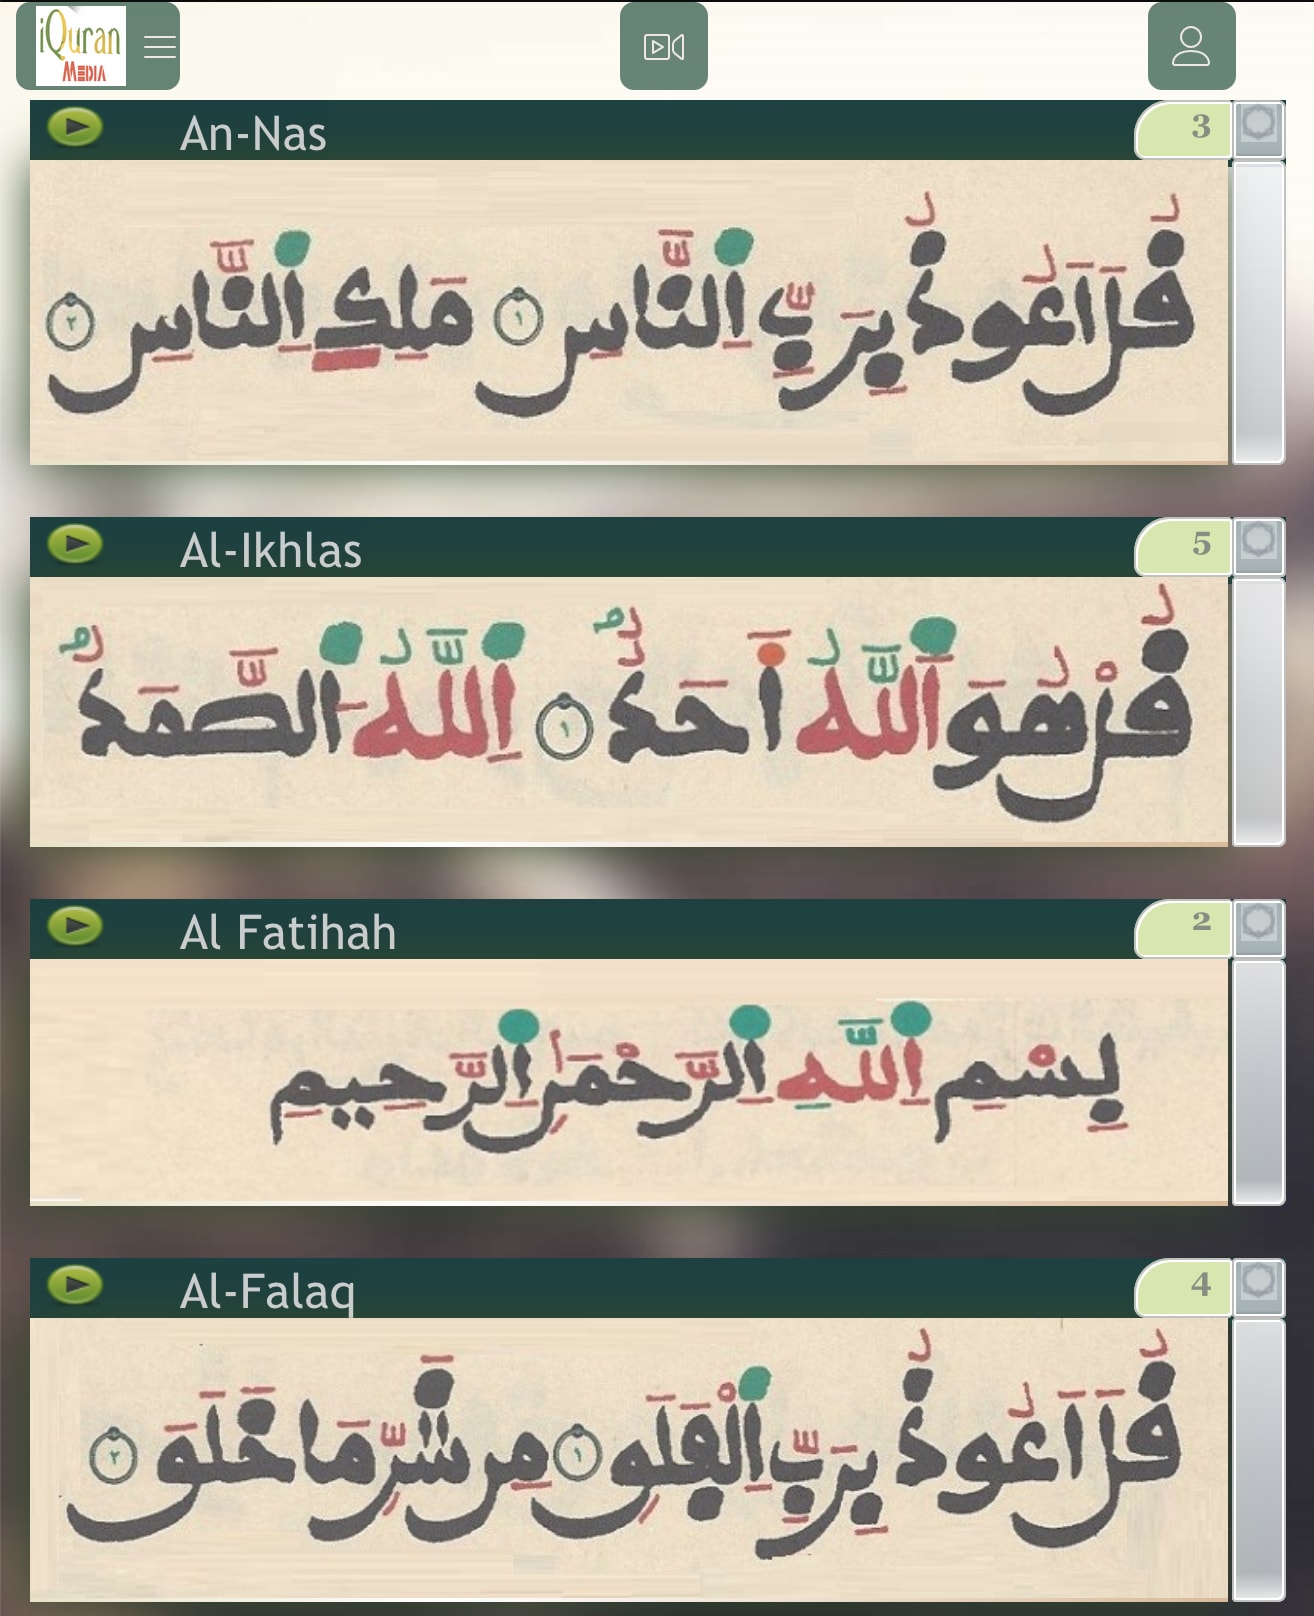 iQuran
MEDIA
An-Nas
3
قُلَ اَعُوذُ بِرَبِّ اِ۬لنَّاسِ ١ مَلِكِ اِ۬لنَّاسِ ٢
Al-Ikhlas
5
قُلْ هُوَ اَ۬للَّهُ أَحَدٌ ١ اِ۬للَّهُ اَ۬لصَّمَدُ
Al Fatihah
2
بِسْمِ اِ۬للَّهِ اِ۬لرَّحْمَٰنِ اِ۬لرَّحِيمِ
Al-Falaq
4
قُلَ اَعُوذُ بِرَبِّ اِ۬لْفَلَقِ ١ مِن شَرِّ مَا خَلَقَ ٢